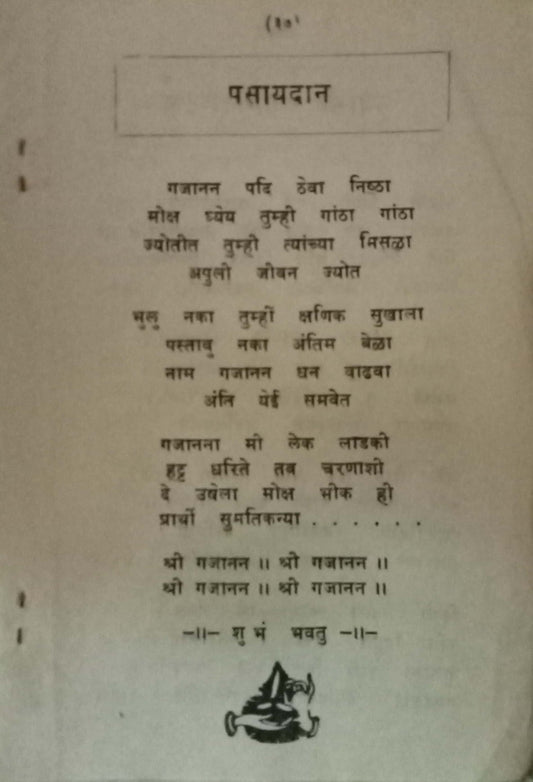 (३७)
पसायदान
गजानन पदि ठेवा निष्ठा
मोक्ष ध्येय तुम्ही गांठा गांठा
ज्योतीत तुम्ही त्यांच्या मिसळा
अपुली जीवन ज्योत
भुलु नका तुम्हीं क्षणिक सुखाला
पस्तावु नका अंतिम वेळा
नाम गजानन धन वाढवा
अंति येई समवेत
गजानना मी लेक लाडकी
हट्ट धरिते तव चरणाशी
दे उषेला मोक्ष भीक ही
प्रार्थी सुमतिकन्या . . . . . .
श्री गजानन ।। श्री गजानन ।।
श्री गजानन ।। श्री गजानन ।।
-॥- शुभं भवतु -॥-